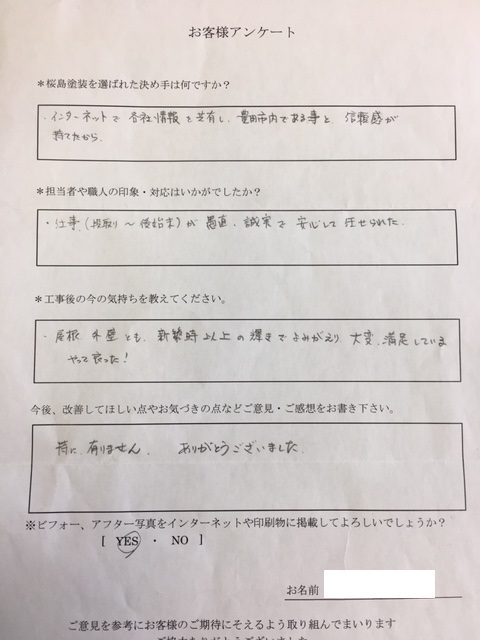 お客様アンケート
＊桜島塗装を選ばれた決め手は何ですか？
・インターネットで各社情報を共有し、豊田市内である事と、信頼感が
持てたから。
＊担当者や職人の印象・対応はいかがでしたか？
・仕事（段取り～後始末）が愚直、誠実で安心して任せられた。
＊工事後の今の気持ちを教えてください。
・屋根 外壁とも、新築時以上の輝きでよみがえり 大変、満足している
やって良った！
今後、改善してほしい点やお気づきの点などご意見・ご感想をお書き下さい。
特に有りません。 ありがとうございました
※ビフォー、アフター写真をインターネットや印刷物に掲載してよろしいでしょうか？
[ YES ・ NO ]
お名前
ご意見を参考にお客様のご期待にそえるよう取り組んでまいります
ご協力ありがとうございました